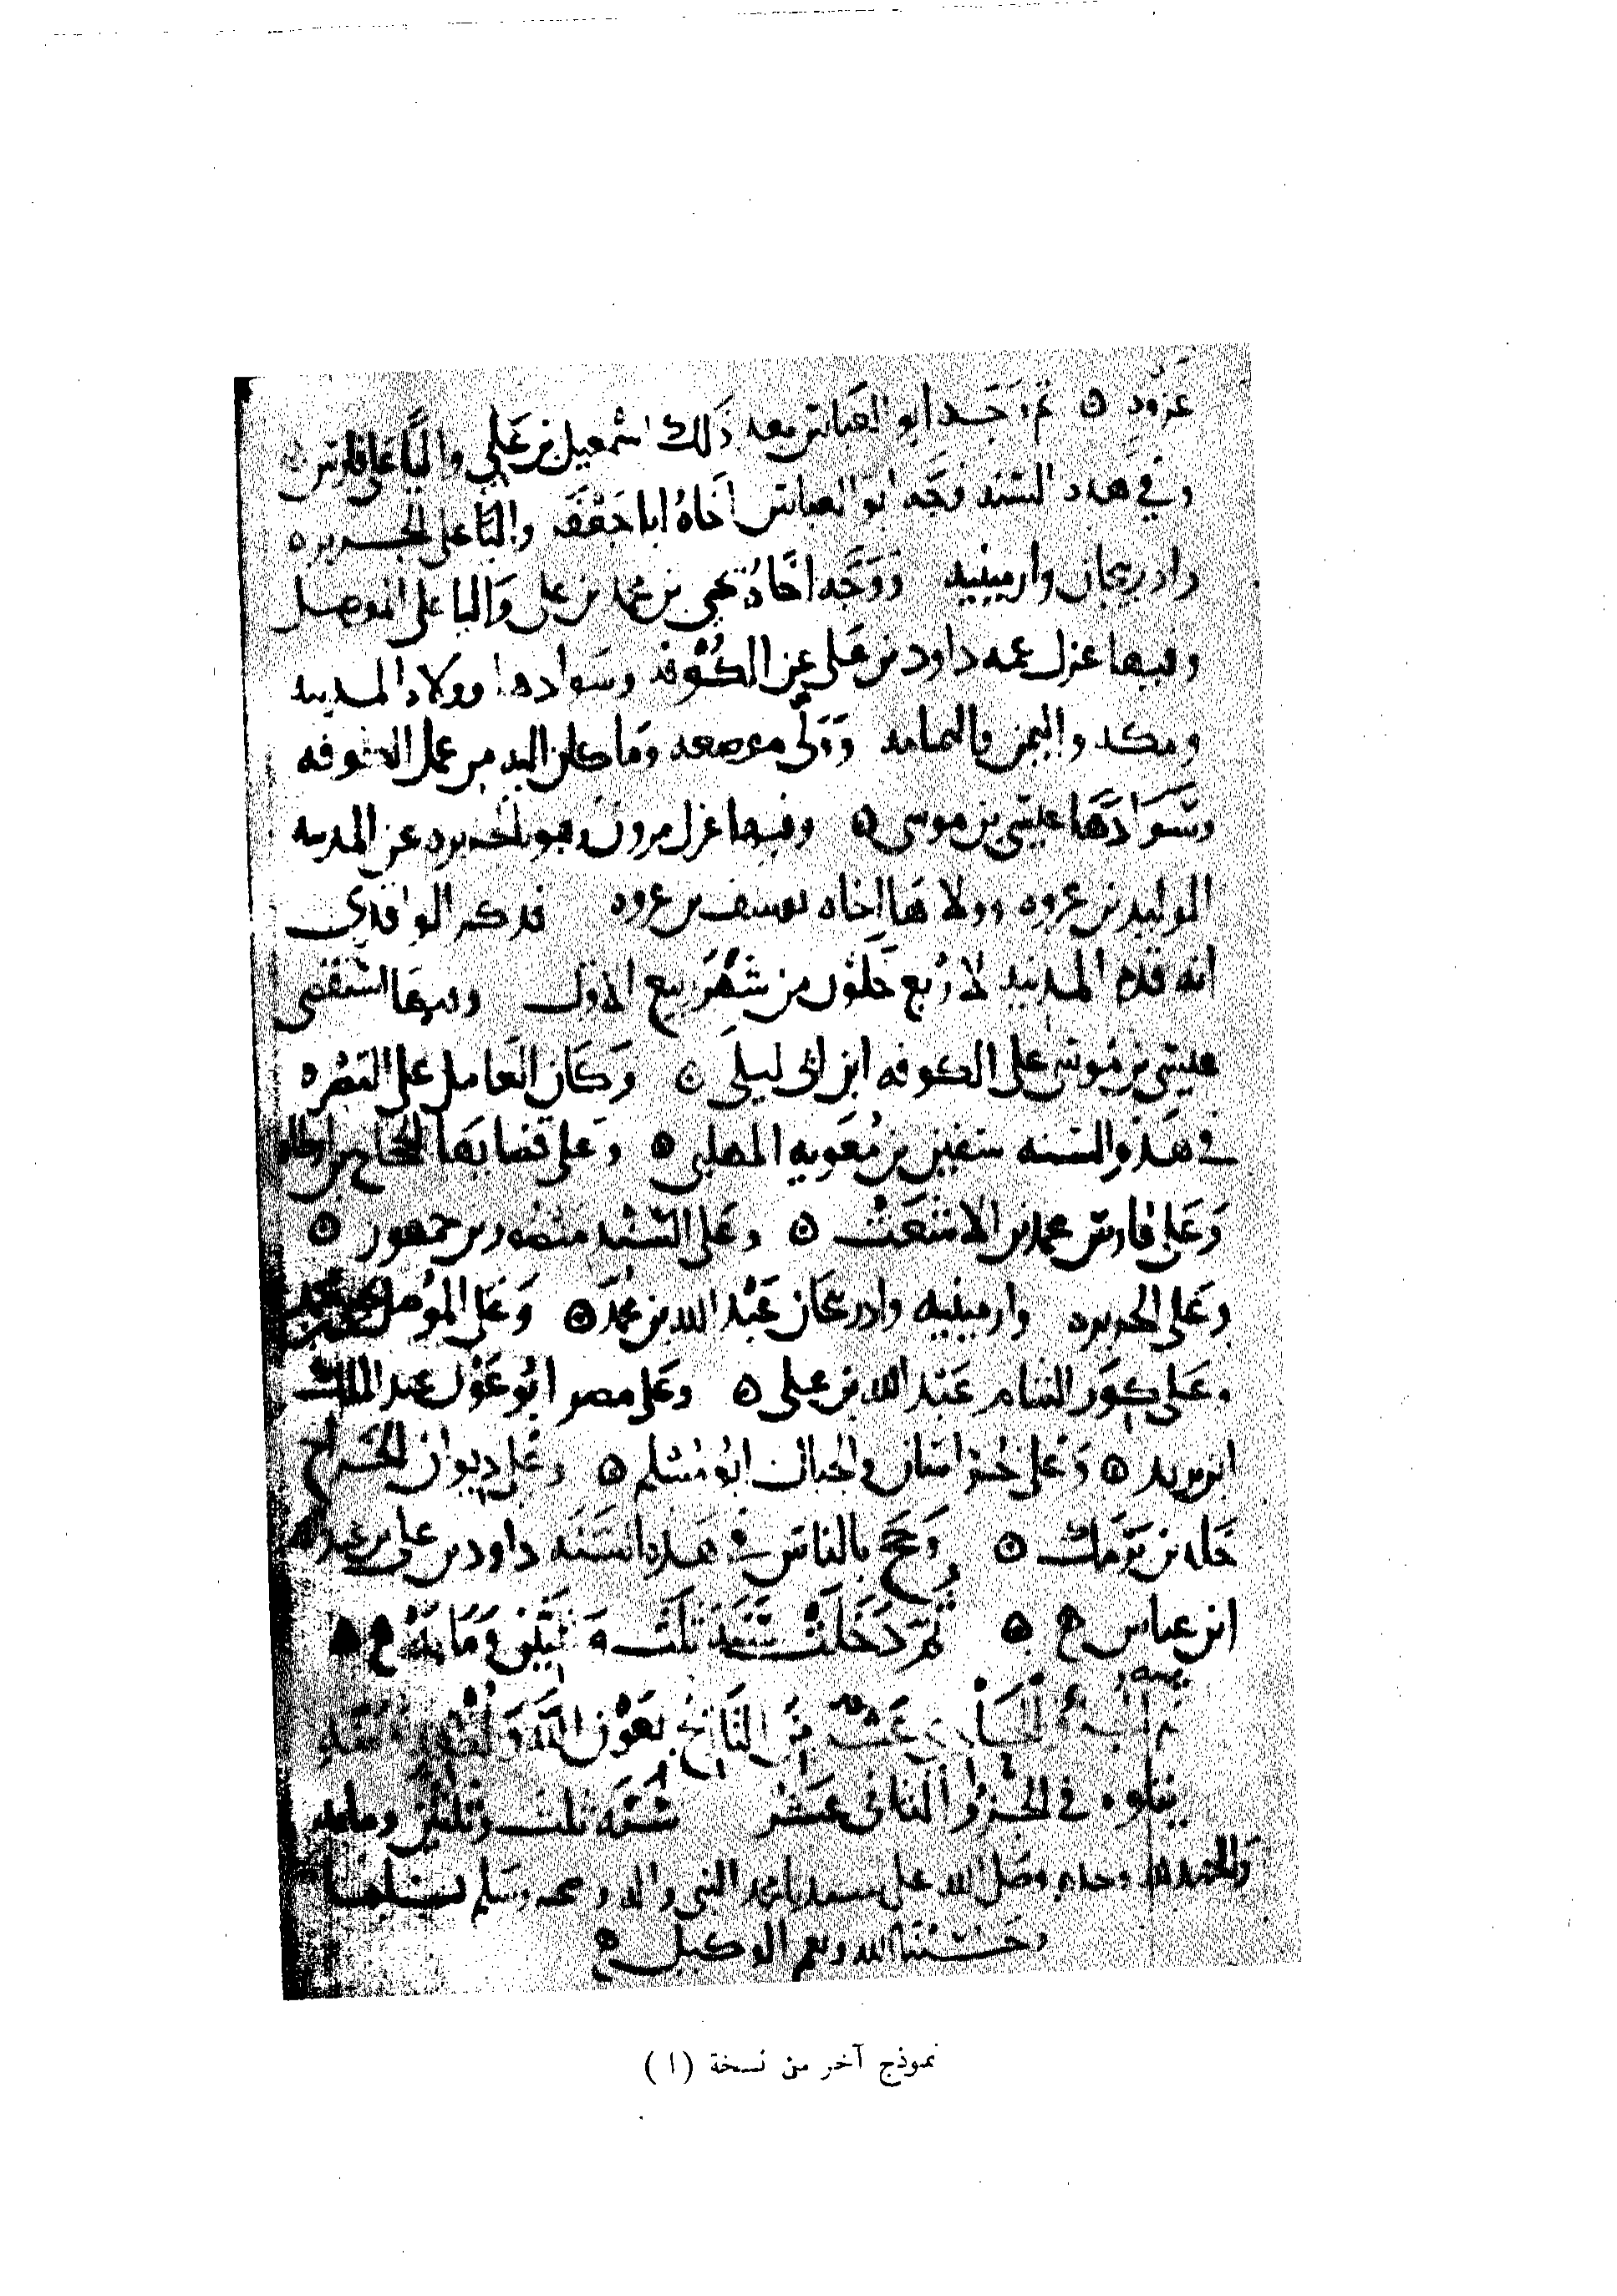 عروه ثم وجه ابو العباس بعد ذلك اسمعيل بن علي واليا على فارس
وفي هذه السنه وجه ابو العباس اخاه ابا جعفر واليا على الجزيره
واذربيجان وارمينيه ووجه اخاه يحيى بن محمد بن علي واليا على الموصل
وفيها عزل عمه داود بن علي عن الكوفه وسوادها وولاه المدينه
ومكه واليمن واليمامه وولى موضعه وما كان اليه من عمل الكوفه
وسوادها عيسى بن موسى وفيها عزل مرون وهو بالجزيره عن المدينه
الوليد بن عروه وولاها اخاه يوسف بن عروه فذكر الواقدي
انه قدم المدينه لاربع خلون من شهر ربيع الاول وفيها استقضى
عيسى بن موسى على الكوفه ابن ابي ليلى وكان العامل على البصره
في هذه السنه سفين بن معويه المهلبي وعلى قضايها الحجاج بن ارطاه
وعلى فارس محمد بن الاشعث وعلى السند منصور بن جمهور
وعلى الجزيره وارمينيه واذربيجان عبد الله بن محمد وعلى الموصل يحيى بن محمد
وعلى كور الشام عبد الله بن علي وعلى مصر ابو عون عبد الملك
ابن يزيد وعلى خراسان والجبال ابو مسلم وعلى ديوان الخراج
خلد بن برمك وحج بالناس في هذه السنه داود بن علي بن عبد الله
ابن عباس ثم دخلت سنه ثلث وثلثين ومايه
الحادي عشر من التاريخ بعون الله
يتلوه في الجزو الثاني عشر سنه ثلث وثلثين ومايه
والحمد لله وحده وصلى الله على سيدنا محمد النبي واله وصحبه وسلم تسليما
وحسبنا الله ونعم الوكيل
نموذج آخر من نسخة (ا)